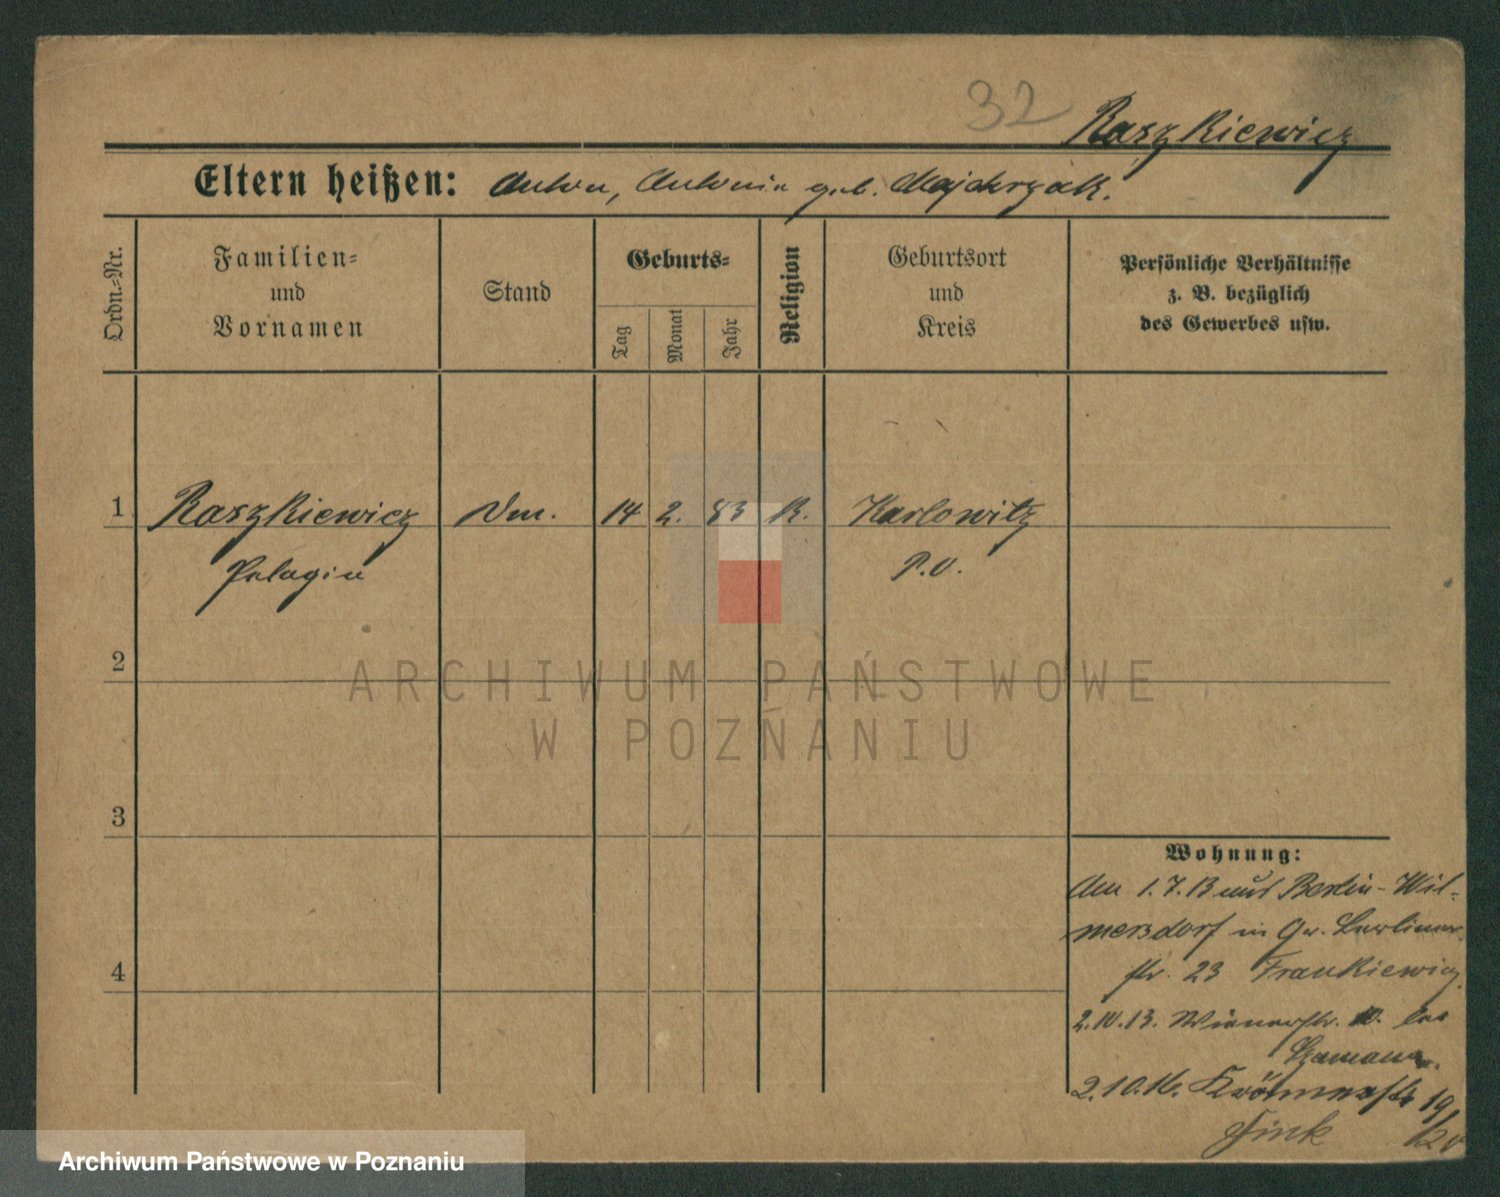 32
Raszkiewicz
Eltern heißen: Anton, Antonie geb. Majchrzak.
Ordn.-Nr.
Familien-
und
Vornamen
Stand
Geburts-
Tag
Monat
Jahr
Religion
Geburtsort
und
Kreis
Persönliche Verhältnisse
z. B. bezüglich
des Gewerbes usw.
1 Raszkiewicz 14 2. 83 K. Karlowitz
Pelagia P.O.
2
ARCHIWUM PAŃSTWOWE
W POZNANIU
3
4
Wohnung:
Am 1.7.13 aus Berlin-Wil-
mersdorf in Gr. Berliner
str. 23 Frankiewicz.
2.10.13. Wienerstr. bei
2.10.16. 19/20
Fink
Archiwum Państwowe w Poznaniu